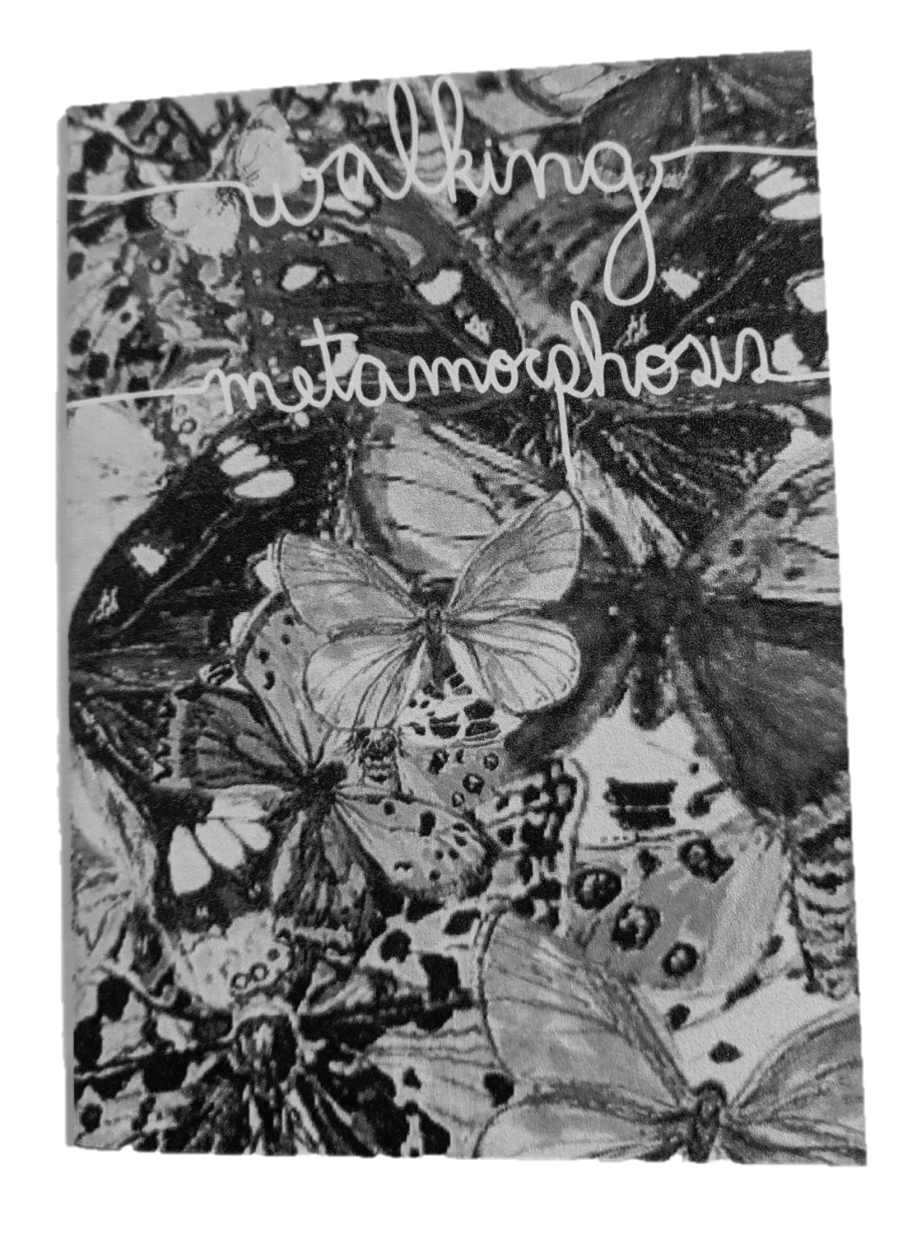 walking
metamorphosis